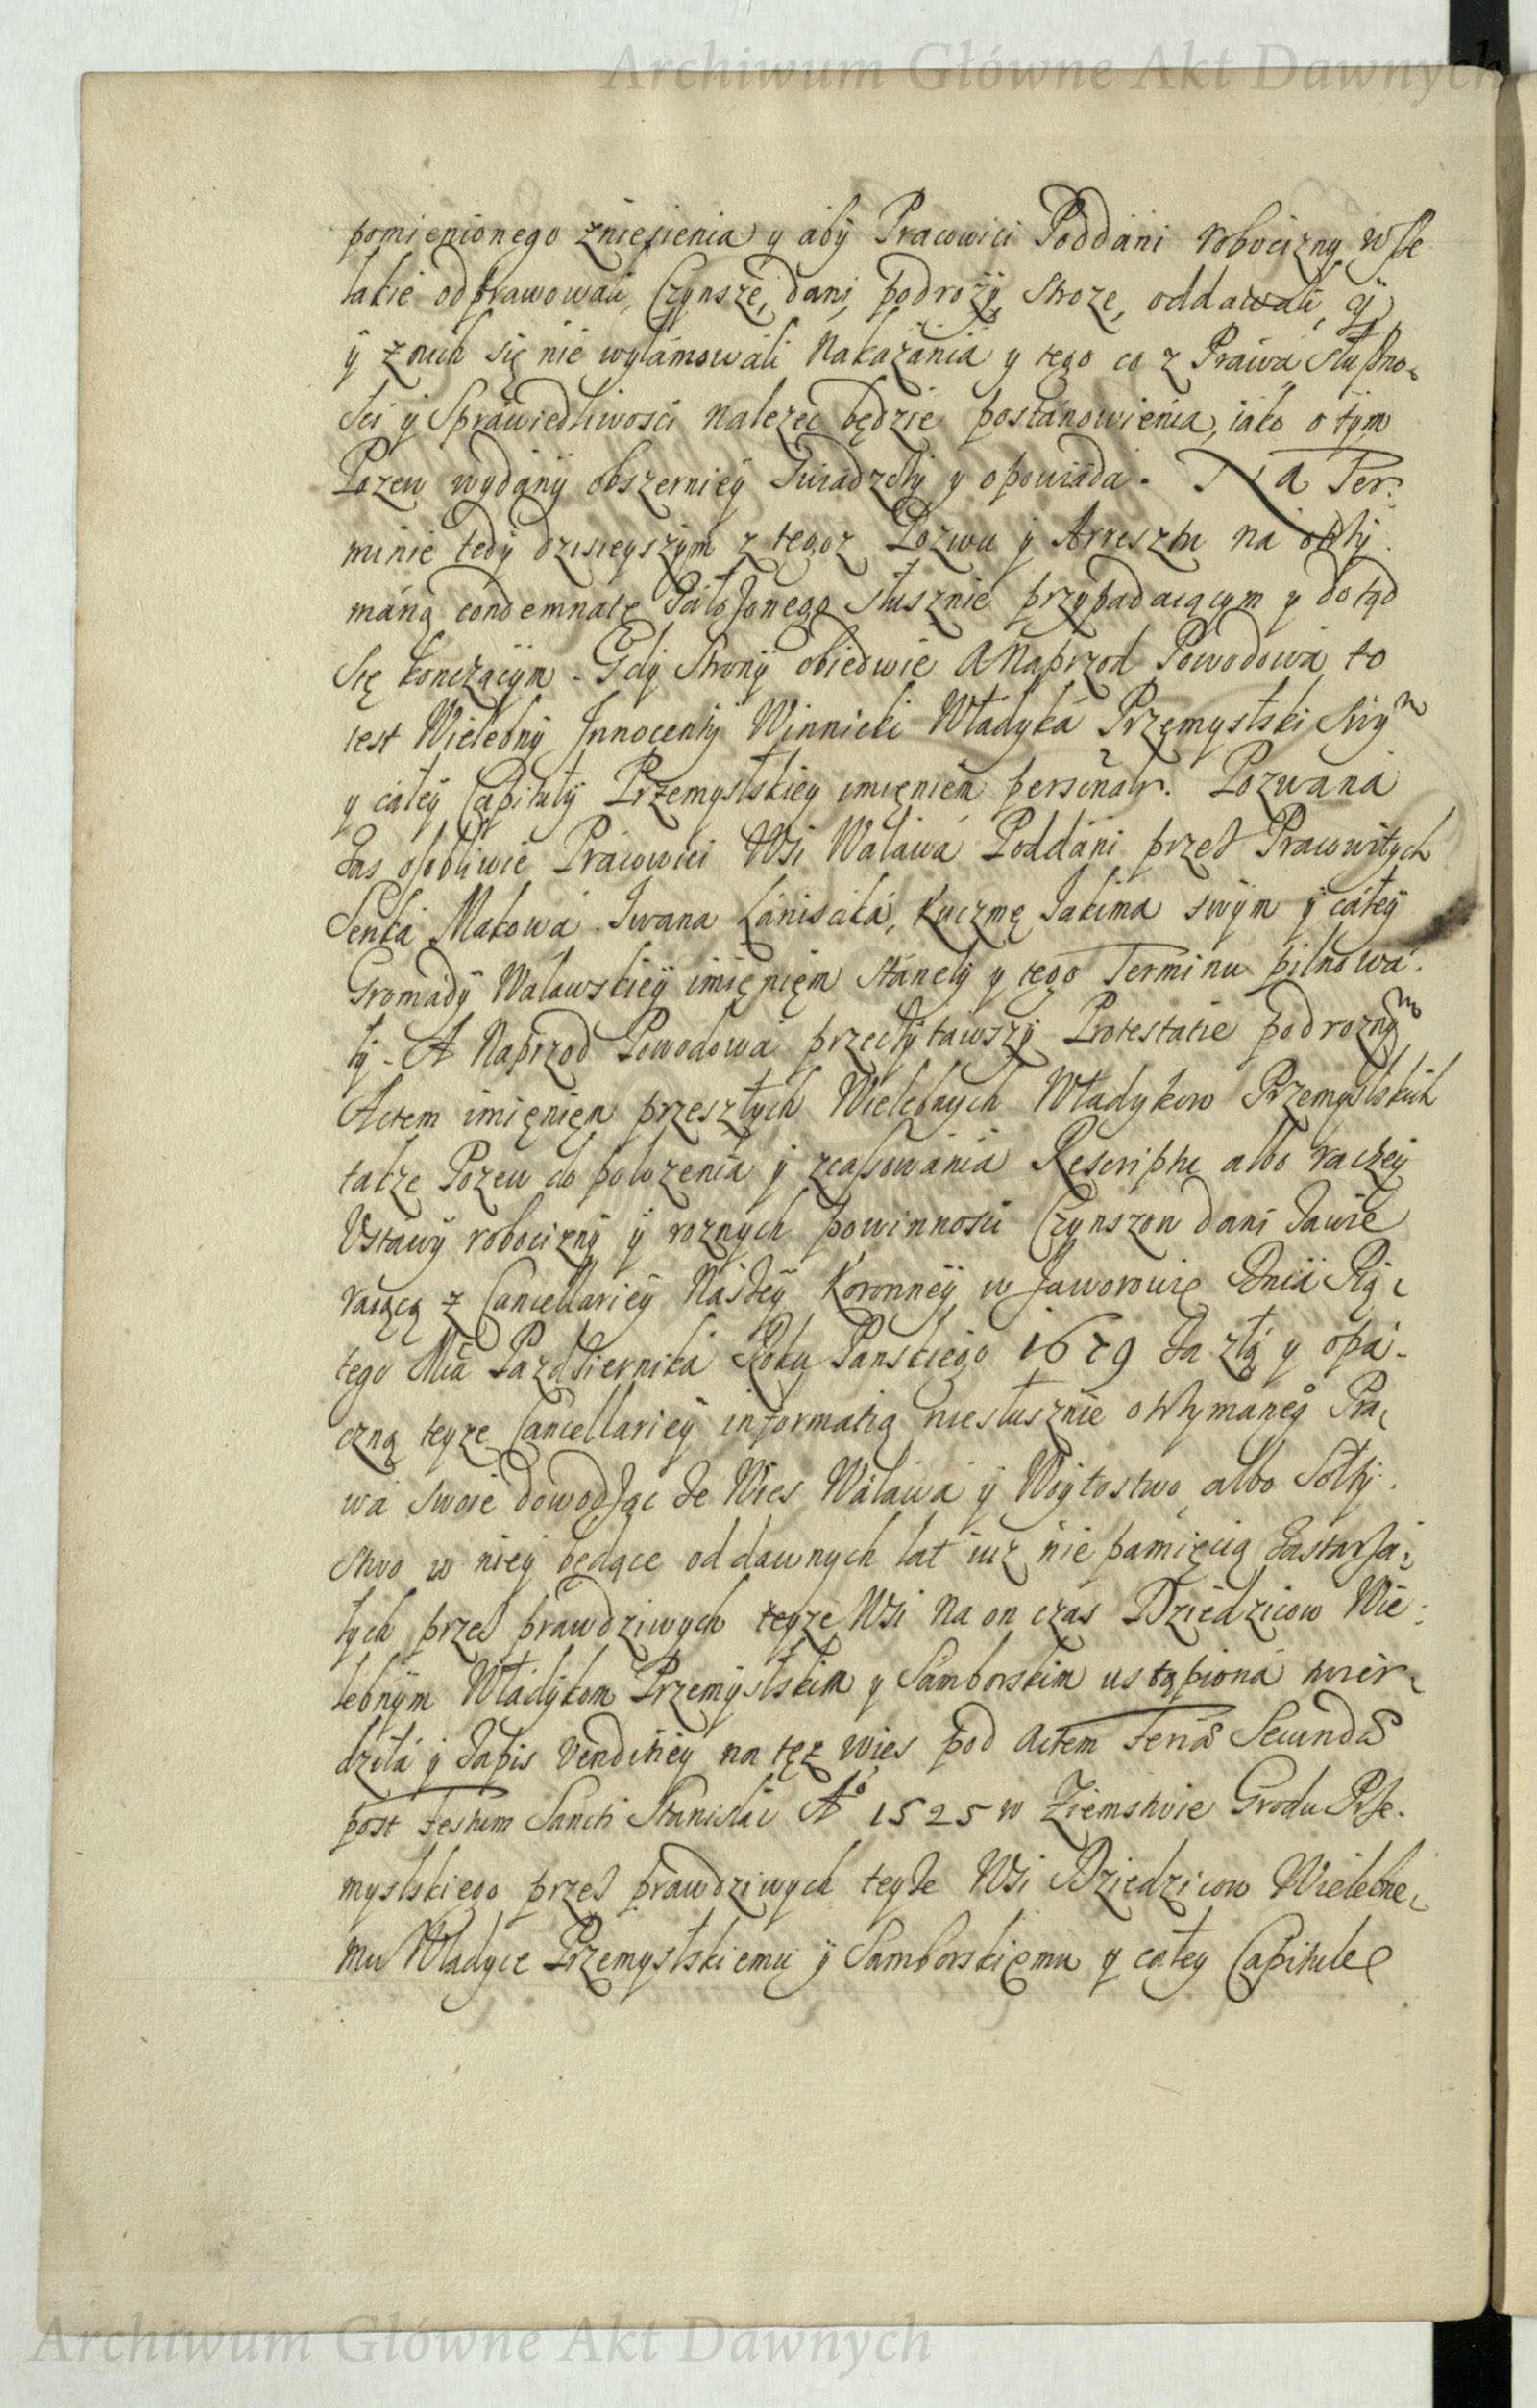 Archiwum Główne Akt Dawnych
pomienionego zniesienia y aby Pracowici Poddani robocizny wsze
lakie odprawowali, Czynsze, dani, podrozy, stroze, oddawali, y
y z nich się nie wyłamowali nakazania y tego co z Prawa Słuszno-
sci y Sprawiedliwosci nalezec będzie postanowienia, iako o tym
Pozew wydany obszerniey swiadzely y opowiada. Na Ter-
minie tedy dzisieyszym z tegoz Pozwu y Arresztu na otrzy-
maną condemnatę załozonego słusznie przypadaiącym y dotąd
się konczącym. Gdy Strony obiedwie A Naprzod Powodowa to
iest Wielebny Innocenty Winnicki Władyka Przemyslski swym
y całey Capituły Przemyslskiey imieniem personalr. Pozwana
zas osobliwie Pracowici Wsi Walawa Poddani przez Pracowitych
Senka Makowa Iwana Łanisaka, Kuczmę Jakima swym y całey
Gromady Walawskiey imięnięm stanely y tego Terminu pilnowa-
ły. A Naprzod Powodowa przeczytawszy Protestatie pod roznym
Actem imięnięm przeszłych Wielebnych Władykow Przemyslskich
takze Pozew do połozenia y zcassowania Rescriptu albo raczey
Ustawy robocizny y roznych powinnosci Czynszow dani zawie
raiącą z Cancellariey Naszey Koronney w Jaworowie Dnia Pią-
tego Mca Pazdziernika Roku Panskiego 1679 za złą y opa-
czną teyze Cancellariey informatią niesłusznie otrzymanego Pra-
wa swoie dowodząc ze Wies Walawa y Woytostwo albo Sołty-
stwo w niey będące od dawnych lat iuz nie pamięcią zastarza-
łych przez prawdziwych teyze Wsi na on czas Dziedzicow Wie-
lebnym Władykom Przemyslskim y Samborskim ustąpiona twier-
dziła y Zapis Venditiey na tęz wies pod Actem Feria Secunda
post Festum Sancti Stanislai Ao 1525 w Ziemstwie Grodu Prze-
myslskiego przez prawdziwych teyze Wsi Dziedzicow Wielebne-
mu Władyce Przemyslskiemu y Samborskiemu y całey Capitule
Archiwum Główne Akt Dawnych